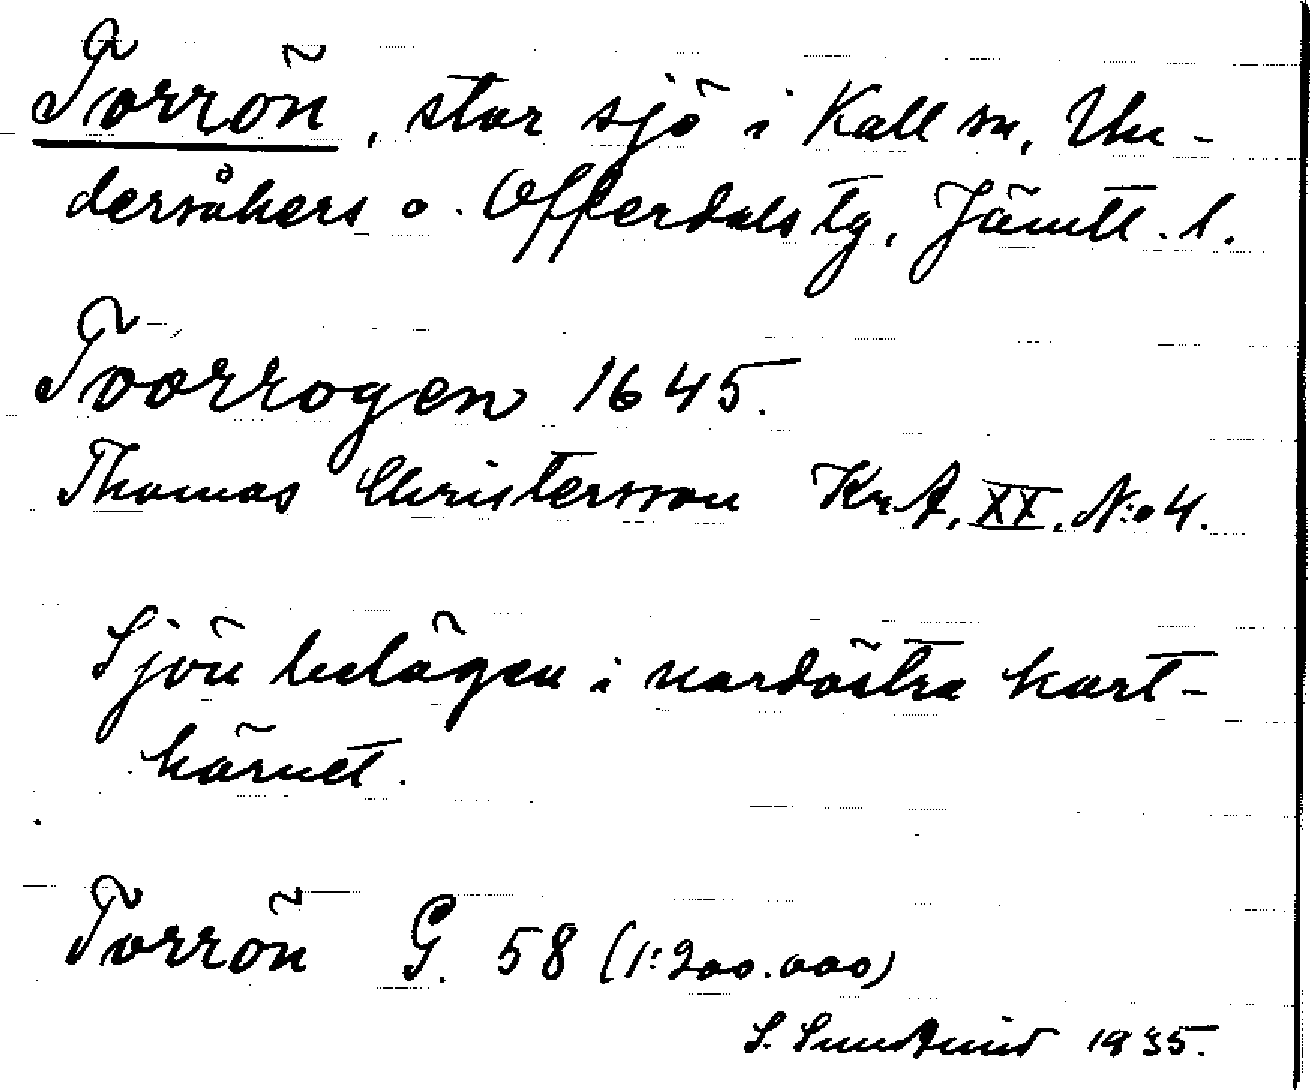 Torrön, stor sjö i Kall sn, Un-
dersåkers o. Offerdals tg, Jämtl. l.
Toorrogen 1645.
Thomas Christersson Kr A, XX. N:o 4.
Sjön belägen i nordöstra kart-
hörnet.
Torrön G. 58 (1:200.000)
S. 1935.